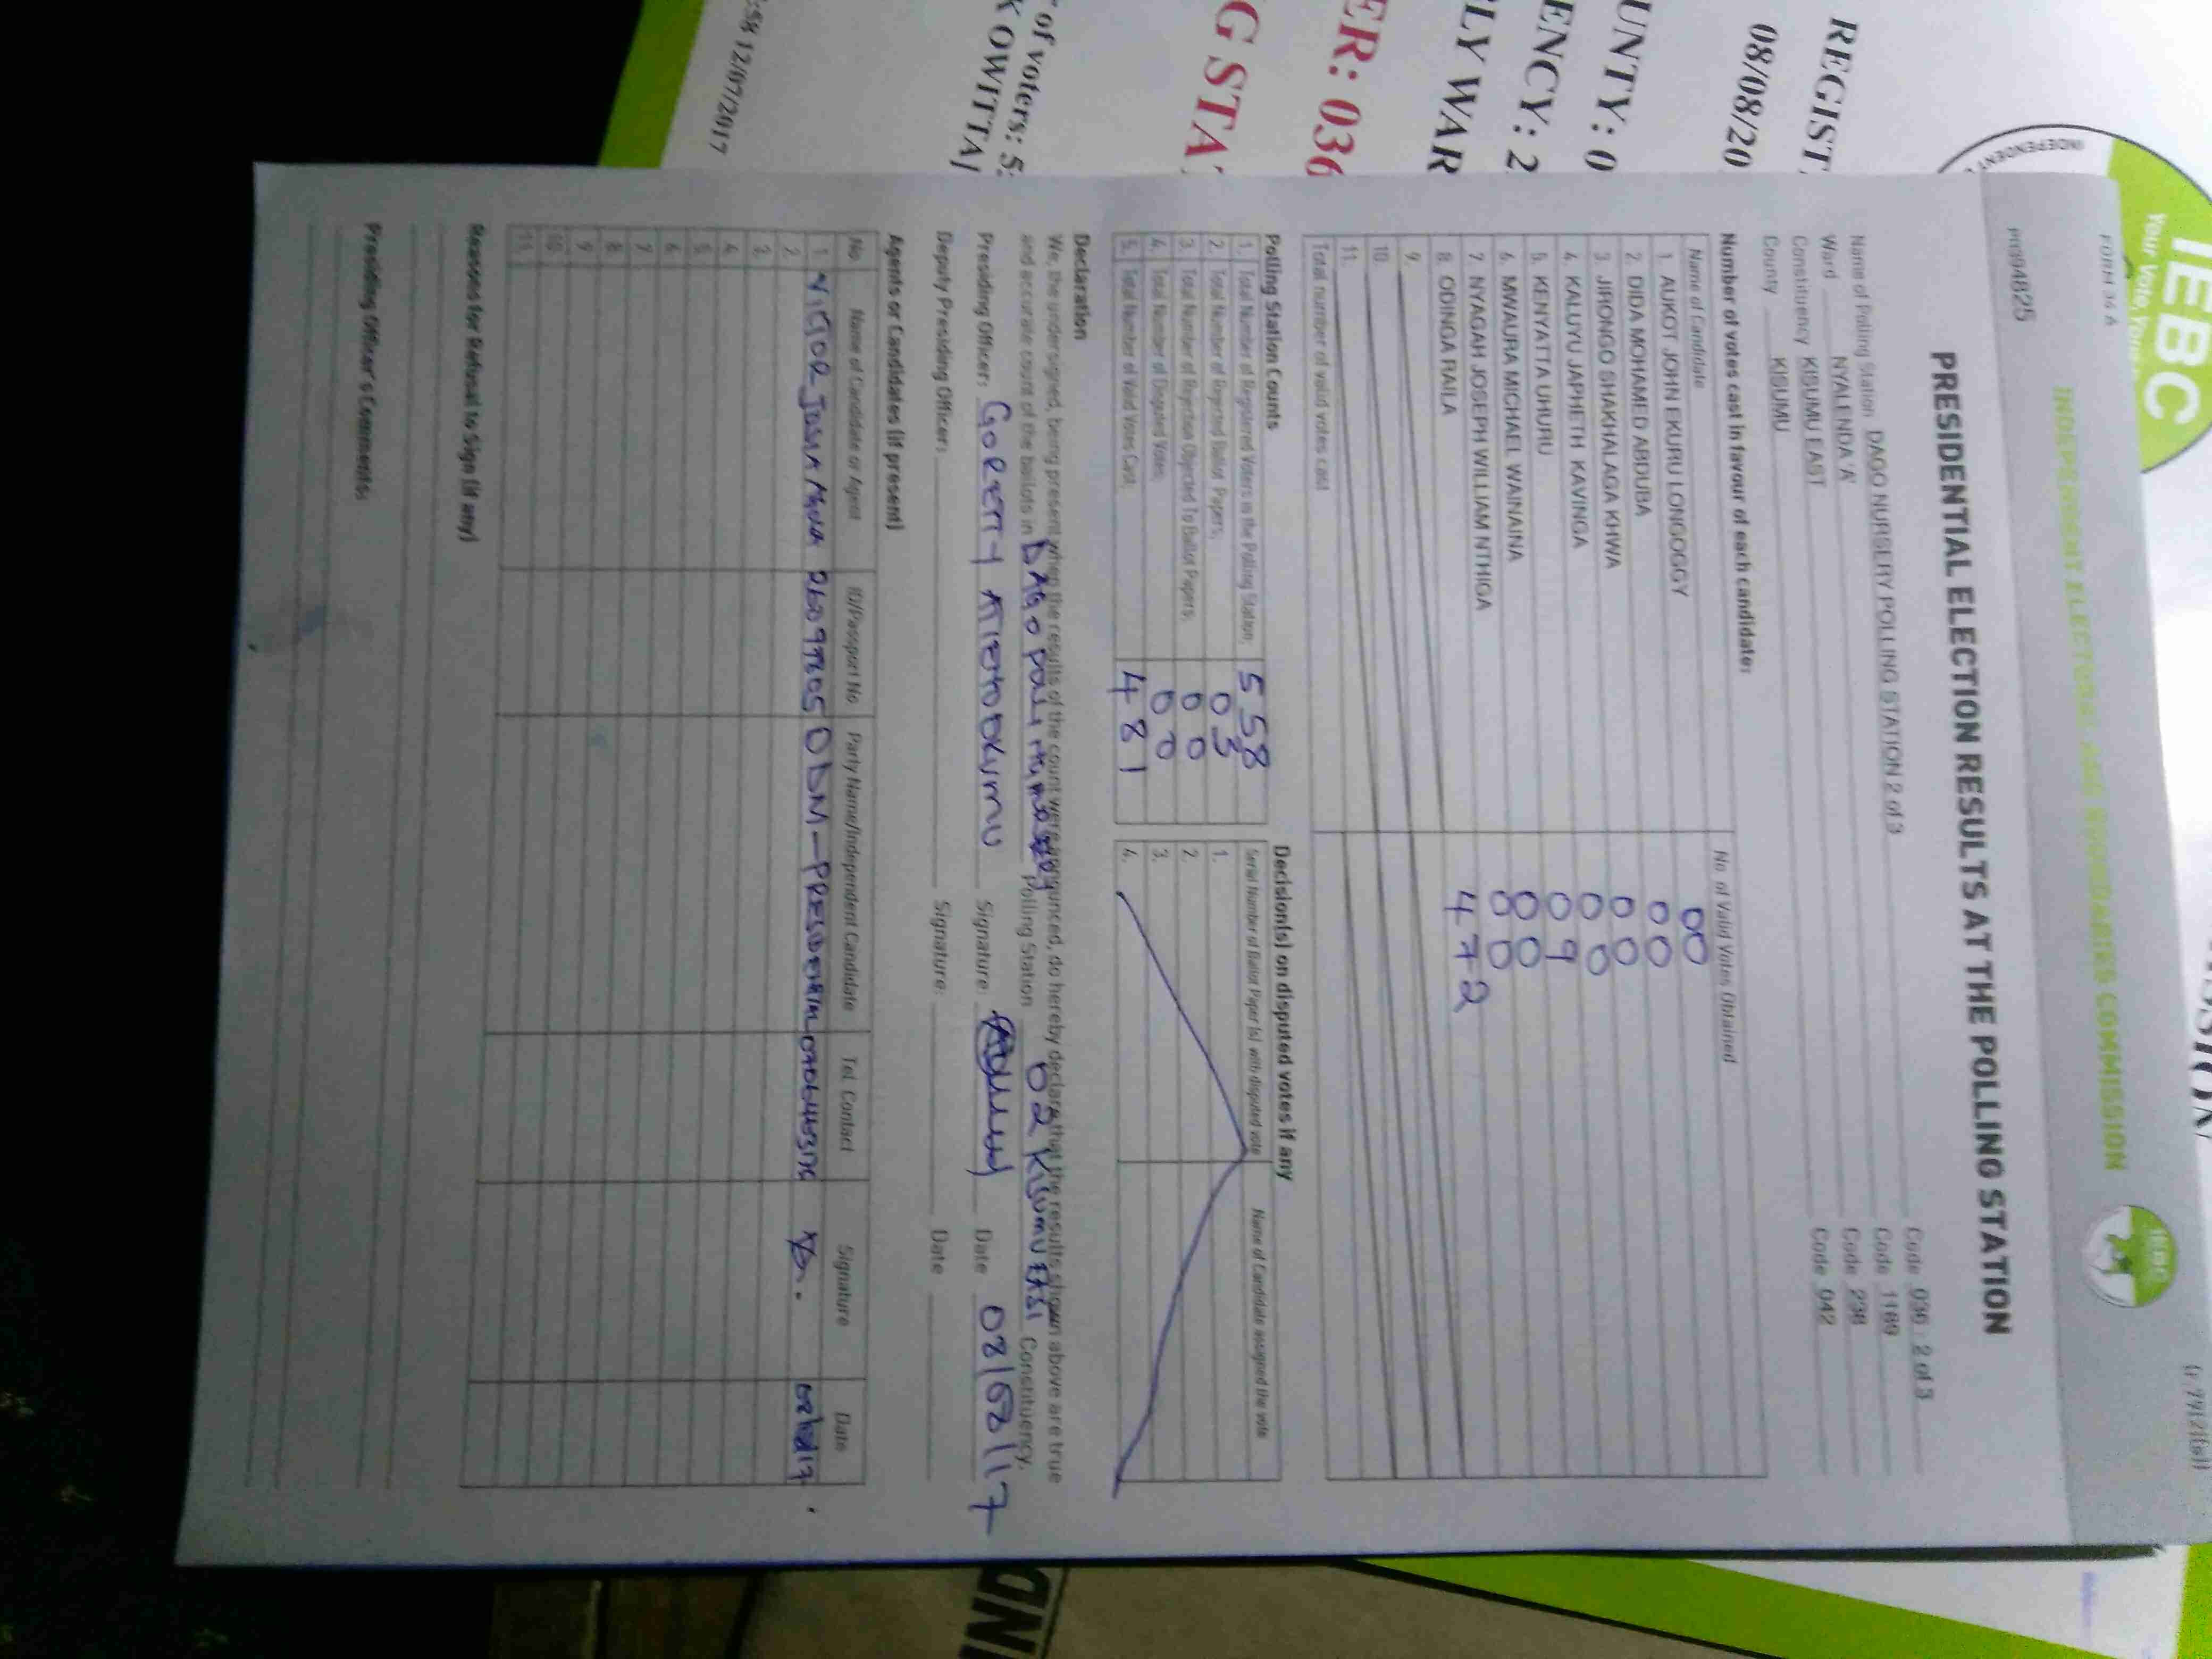 IEBC
Your Vote, Your
INDEPENDENT
REGIST
08/08/20
UNTY: 0
ENCY: 2
LY WAR
ER: 036
G STA
of voters: 5
K OWITTA
:58 12/07/2017
FORM 34 A
INDEPENDENT ELECTORAL AND BOUNDARIES COMMISSION
IEBC
PRESIDENTIAL ELECTION RESULTS AT THE POLLING STATION
Name of Polling Station DAGO NURSERY POLLING STATION 2 of 3 Code 036 - 2 of 3
Ward NYALENDA 'A' Code 1189
Constituency KISUMU EAST Code 238
County KISUMU Code 042
Number of votes cast in favour of each candidate:
Name of Candidate No. of Valid Votes Obtained
1. AUKOT JOHN EKURU LONGOGGY 00
2. DIDA MOHAMED ABDUBA 00
3. JIRONGO SHAKHALAGA KHWA 00
4. KALUYU JAPHETH KAVINGA 00
5. KENYATTA UHURU 09
6. MWAURA MICHAEL WAINAINA 00
7. NYAGAH JOSEPH WILLIAM NTHIGA 00
8. ODINGA RAILA 472
9.
10.
11.
Total number of valid votes cast
Polling Station Counts
1. Total Number of Registered Voters in the Polling Station: 558
2. Total Number of Rejected Ballot Papers; 03
3. Total Number of Rejection Objected To Ballot Papers; 00
4. Total Number of Disputed Votes; 00
5. Total Number of Valid Votes Cast; 481
Decision(s) on disputed votes if any
Serial Number of Ballot Paper (s) with disputed vote Name of Candidate assigned the vote
1.
2.
3.
4.
Declaration
We, the undersigned, being present when the results of the count were announced, do hereby declare that the results shown above are true
and accurate count of the ballots in DAGO Polling Station 02 KISUMU EAST Constituency.
Presiding Officer: GORETTY Signature: Date 08/08/17
Deputy Presiding Officer: Signature: Date
Agents or Candidates (if present)
No. Name of Candidate or Agent ID/Passport No. Party Name/Independent Candidate Tel. Contact Signature Date
1. VICTOR ODM - PRESIDENTIAL
2.
3.
4.
5.
6.
7.
8.
9.
10.
11.
Reasons for Refusal to Sign (if any)
Presiding Officer's Comments:
IND